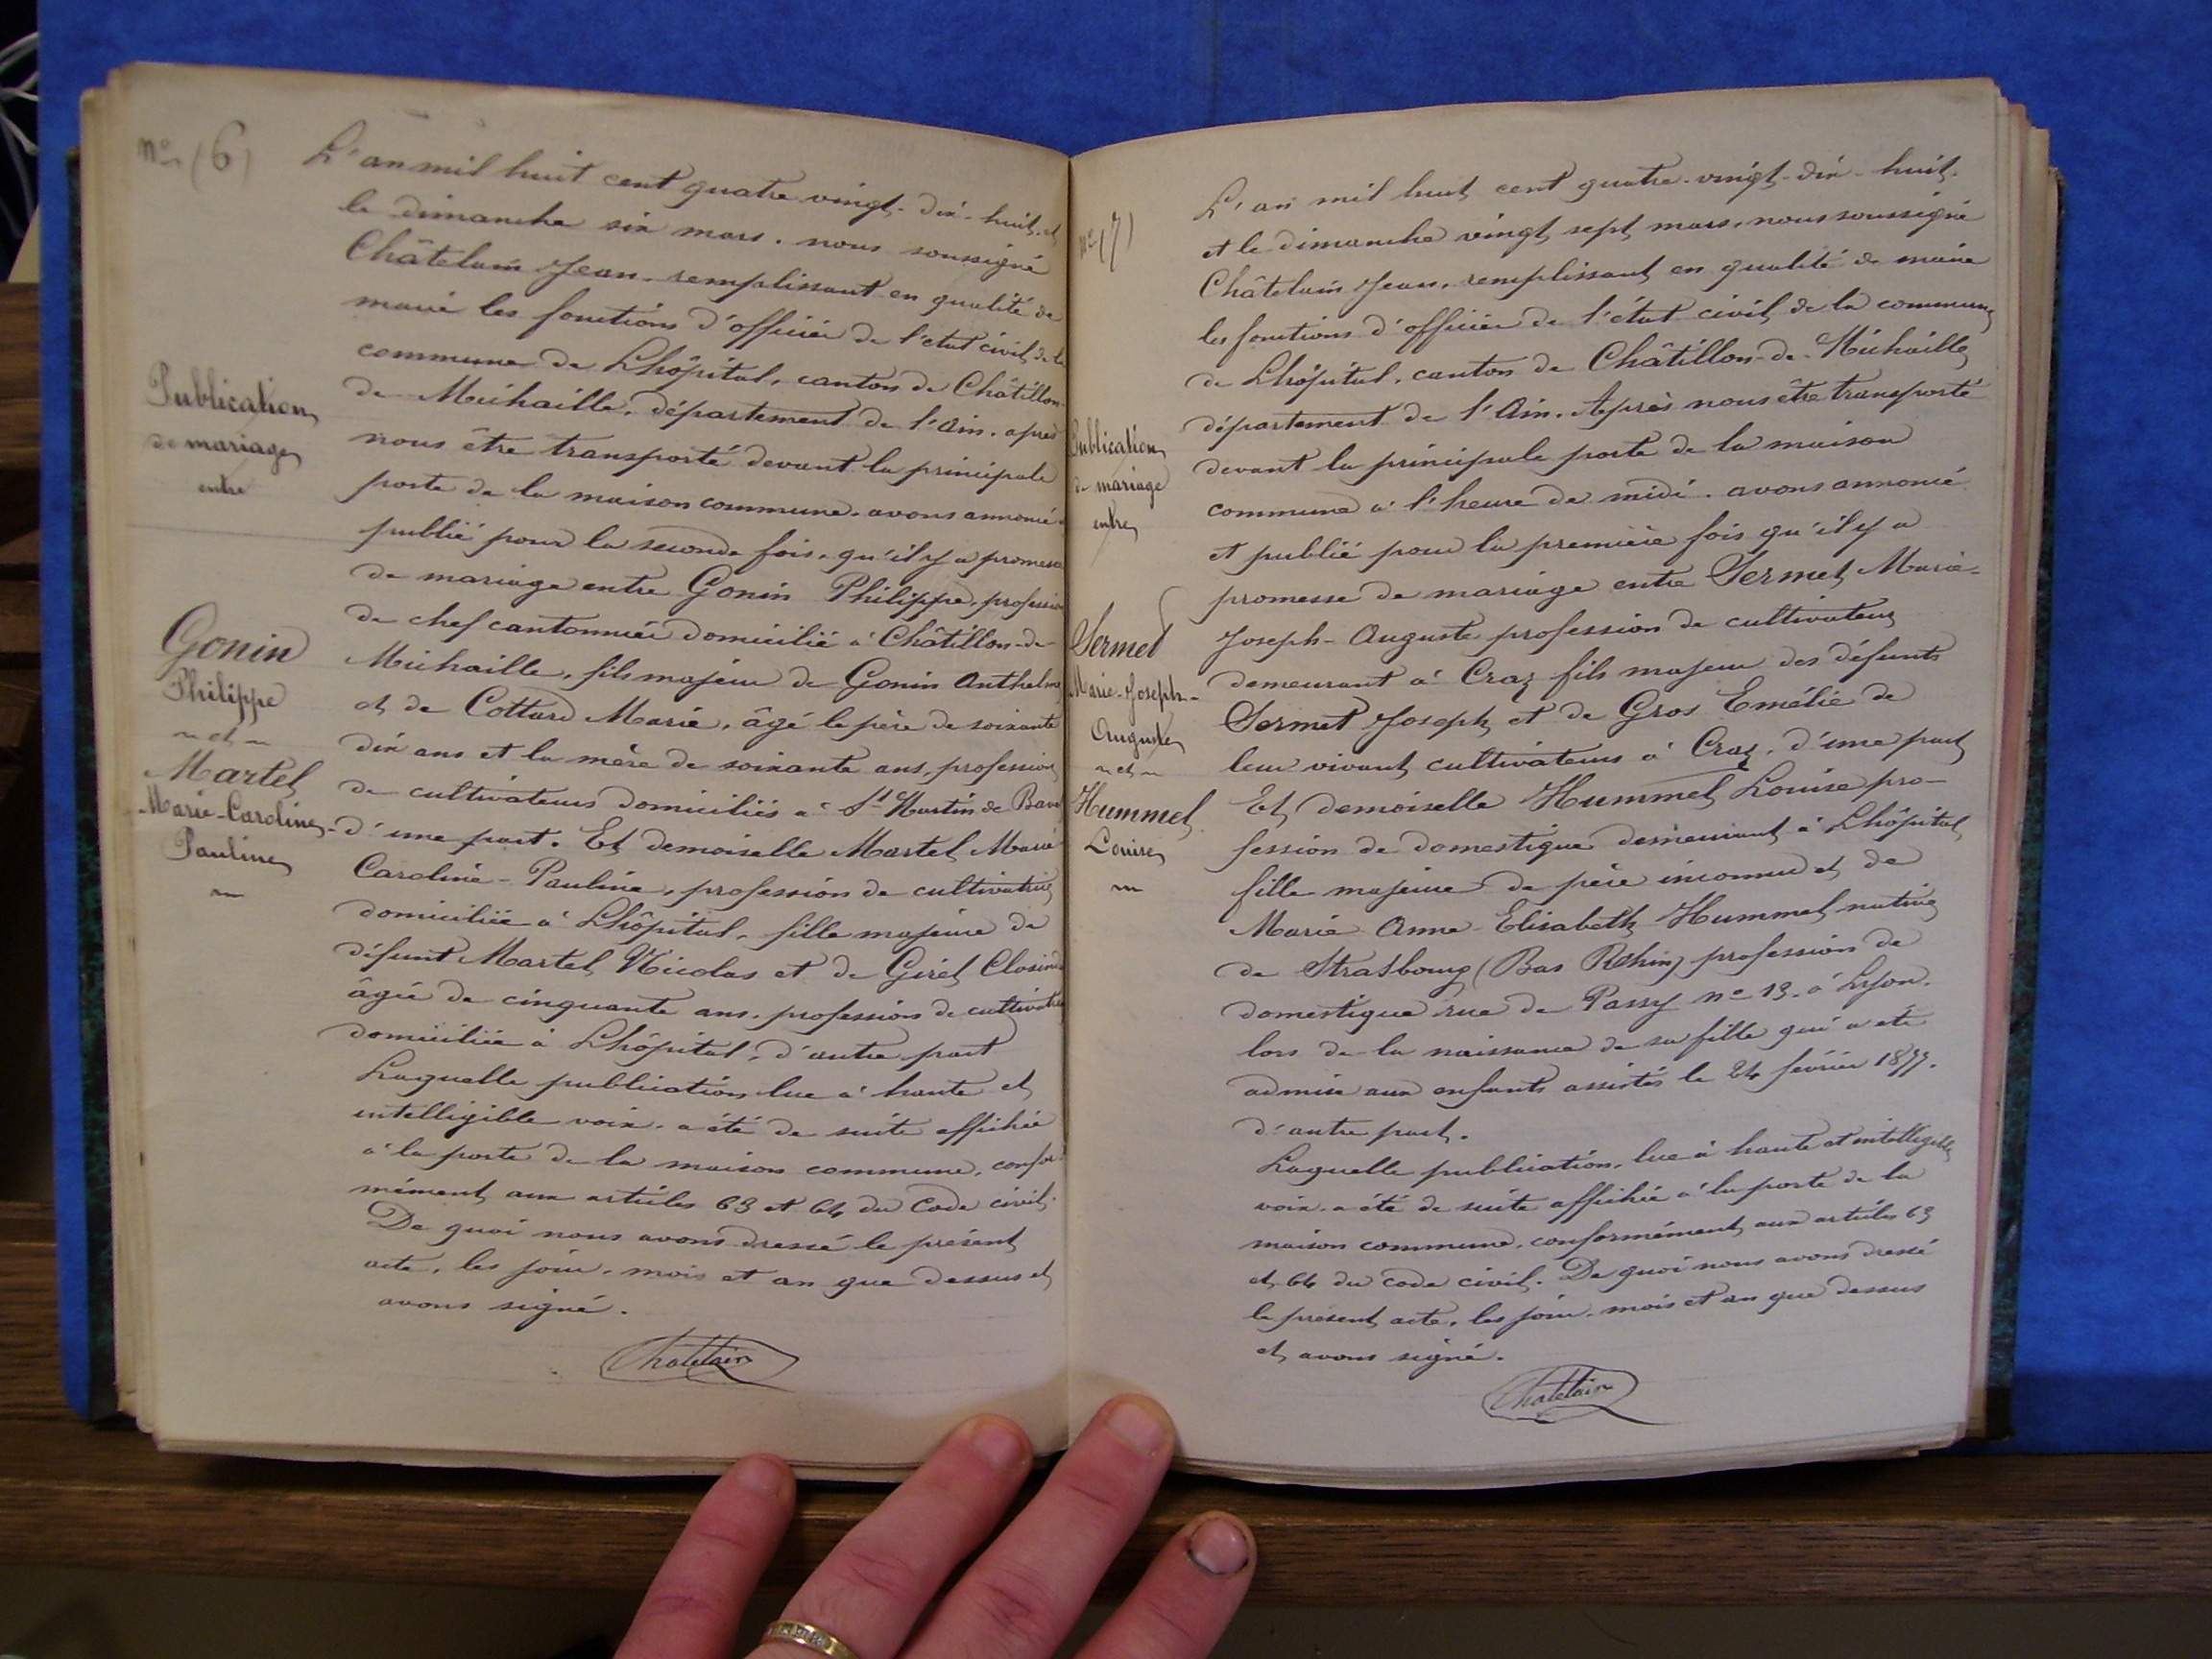 n° (6)
L'an mil huit cent quatre vingt-dix-huit, et
le dimanche six mars. nous soussigné
Châtelain Jean, remplissant en qualité de
maire les fonctions d'officier de l'état civil de la
commune de Lhôpital, canton de Châtillon-
de-Michaille, département de l'Ain, après
nous être transporté devant la principale
porte de la maison commune, avons annoncé
publié pour la seconde fois, qu'il y a promesse
de mariage entre Gonin Philippe, profession
de chef cantonnier domicilié à Châtillon-de-
Michaille, fils majeur de Gonin Anthelme
et de Cottard Marie, âgé le père de soixante
dix ans et la mère de soixante ans, profession
de cultivateurs domiciliés à St Martin de Bav
d'une part. Et demoiselle Martel Marie
Caroline-Pauline, profession de cultivatrice
domiciliée à Lhôpital, fille majeure de
défunt Martel Nicolas et de Girel Closine
âgée de cinquante ans, profession de cultivatrice
domiciliée à Lhôpital, d'autre part
Laquelle publication lue à haute et
intelligible voix, a été de suite affichée
à la porte de la maison commune, confor-
mément aux articles 63 et 64 du Code civil.
De quoi nous avons dressé le présent
acte, les jour, mois et an que dessus et
avons signé.
Chatelain
Publication
de mariage
entre
Gonin
Philippe
et
Martel
Marie-Caroline-
Pauline
n° (7)
L'an mil huit cent quatre-vingt-dix-huit.
et le dimanche vingt sept mars, nous soussigné
Châtelain Jean, remplissant en qualité de maire
les fonctions d'officier de l'état civil de la commune
de Lhôpital, canton de Châtillon-de-Michaille
département de l'Ain. Après nous être transporté
devant la principale porte de la maison
commune à l'heure de midi, avons annoncé
et publié pour la première fois qu'il y a
promesse de mariage entre Sermet Marie-
Joseph-Auguste profession de cultivateur
demeurant à Craz fils majeur des défunts
Sermet Joseph et de Gros Emélie de
leur vivant cultivateurs à Craz, d'une part
Et demoiselle Hummel Louise pro-
fession de domestique demeurant à Lhôpital
fille majeure de père inconnu et de
Marie Anne Elisabeth Hummel native
de Strasbourg (Bas Rhin) profession de
domestique rue de Passy n° 13. à Lyon.
lors de la naissance de sa fille qui a été
admise aux enfants assistés le 24 février 1877.
d'autre part.
Laquelle publication, lue à haute et intelligible
voix, a été de suite affichée à la porte de la
maison commune, conformément aux articles 63
et 64 du code civil. De quoi nous avons dressé
le présent acte, les jour, mois et an que dessus
et avons signé.
Chatelain
Publication
de mariage
entre
Sermet
Marie-Joseph-
Auguste
et
Hummel
Louise